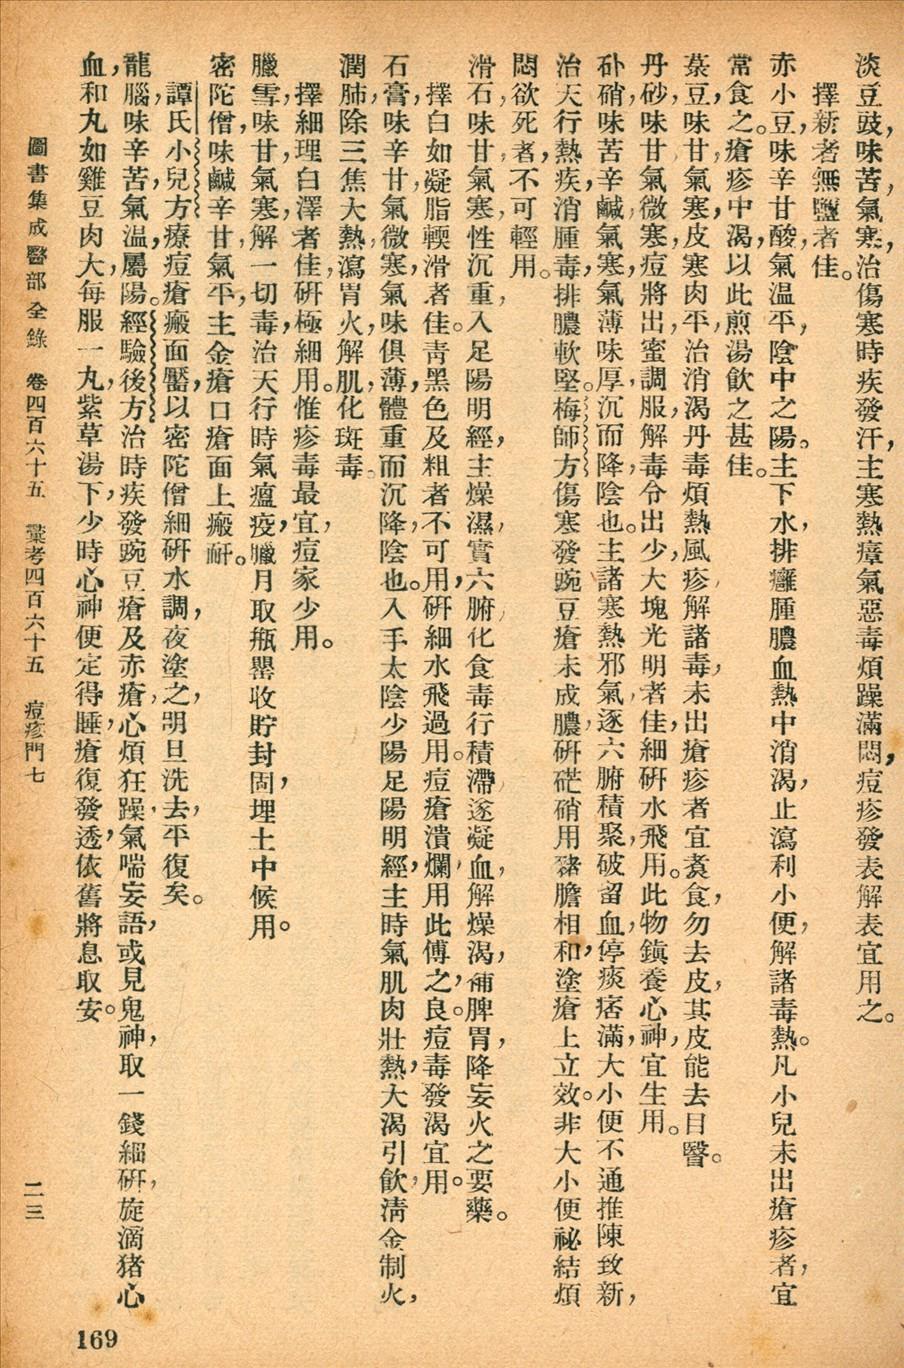 淡豆豉，味苦，氣寒，治傷寒時疾發汗，主寒熱瘴氣惡毒煩躁滿悶，痘疹發表解表宜用之。
擇新者無鹽者佳。
赤小豆，味辛甘酸，氣温平，陰中之陽。主下水，排癰腫膿血熱中消渴，止瀉利小便，解諸毒熱。凡小兒未出瘡疹者，宜
常食之。瘡疹中渴，以此煎湯飲之甚佳。
菉豆，味甘，氣寒，皮寒肉平，治消渴丹毒煩熱風疹，解諸毒，未出瘡疹者宜煑食，勿去皮，其皮能去目翳。
丹砂，味甘，氣微寒，痘將出，蜜調服，解毒令出少，大塊光明者佳，細硏水飛用。此物鎭養心神，宜生用。
朴硝，味苦辛鹹，氣寒，氣薄味厚，沉而降，陰也。主諸寒熱邪氣，逐六腑積聚，破畱血，停痰痞滿，大小便不通，推陳致新，
治天行熱疾，消腫毒，排膿軟堅。梅師方傷寒發豌豆瘡未成膿，硏硭硝用豬膽相和，塗瘡上立效。非大小便祕結煩
悶欲死者，不可輕用。
滑石，味甘，氣寒，性沉重，入足陽明經，主燥濕，實六腑，化食毒，行積滯，逐凝血，解燥渴，補脾胃，降妄火之要藥。
擇白如凝脂輭滑者佳。靑黑色及粗者不可用，硏細水飛過用。痘瘡潰爛，用此傅之，良。痘毒發渴宜用。
石膏，味辛甘，氣微寒，氣味俱薄，體重而沉降，陰也。入手太陰少陽足陽明經，主時氣肌肉壯熱，大渴引飲，淸金制火，
潤肺，除三焦大熱，瀉胃火，解肌，化斑毒。
擇細理白澤者佳，硏極細用。惟疹毒最宜，痘家少用。
臘雪，味甘，氣寒，解一切毒，治天行時氣瘟疫，臘月取甁罌收貯封固，埋土中候用。
密陀僧，味鹹辛甘，氣平，主金瘡口瘡面上瘢䵟。
譚氏小兒方療痘瘡瘢面靨，以密陀僧細硏水調，夜塗之，明旦洗去，平復矣。
龍腦，味辛苦，氣温，屬陽。經驗後方治時疾發豌豆瘡及赤瘡，心煩狂躁，氣喘妄語，或見鬼神，取一錢細硏，旋滴猪心
血，和丸如雞豆肉大，每服一丸，紫草湯下，少時心神便定得睡，瘡復發透，依舊將息取安。
圖書集成醫部全錄 卷四百六十五 彙考四百六十五 痘疹門七 二三
169